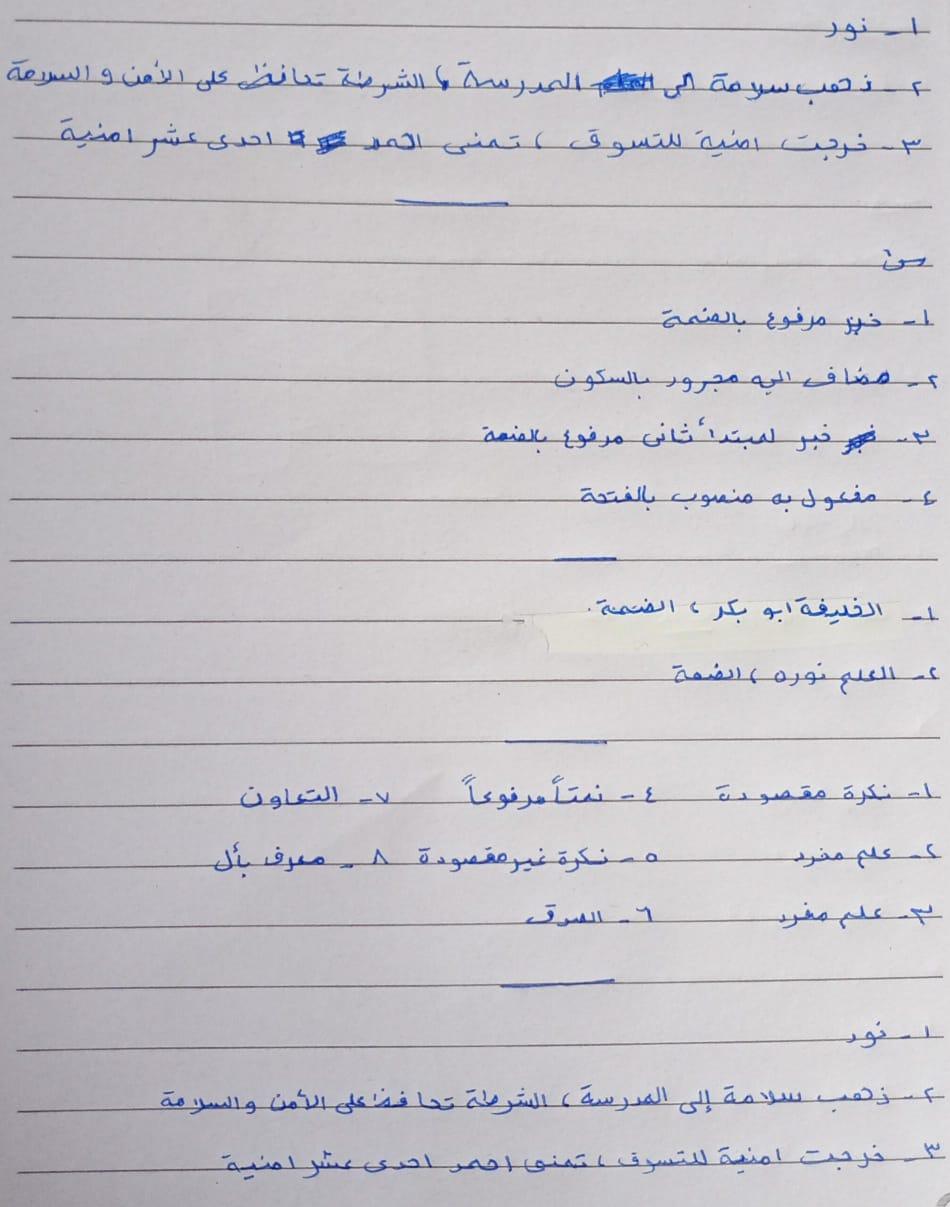 ١- نور
٢- ذهب سلامة الى المدرسة ، الشرطة تحافظ على الأمن و السلامة
٣- خرجت امنية للتسوق ، تمنى احمد احدى عشر امنية
١- خبر مرفوع بالضمة
٢- مضاف اليه مجرور بالسكون
٣- خبر لمبتدأ ثانى مرفوع بالضمة
٤- مفعول به منصوب بالفتحة
١- الخليفة ابو بكر ، الضمة.
٢- العلم نوره ، الضمة
١- نكرة مقصودة ٤- نعتاً مرفوعاً ٧- التعاون
٢- علم مفرد ٥- نكرة غير مقصودة ٨- معرف بأل
٣- علم مفرد ٦- الصدق
١- نور
٢- ذهب سلامة إلى المدرسة ، الشرطة تحافظ على الأمن والسلامة
٣- خرجت امنية للتسوق ، تمنى احمد احدى عشر امنية